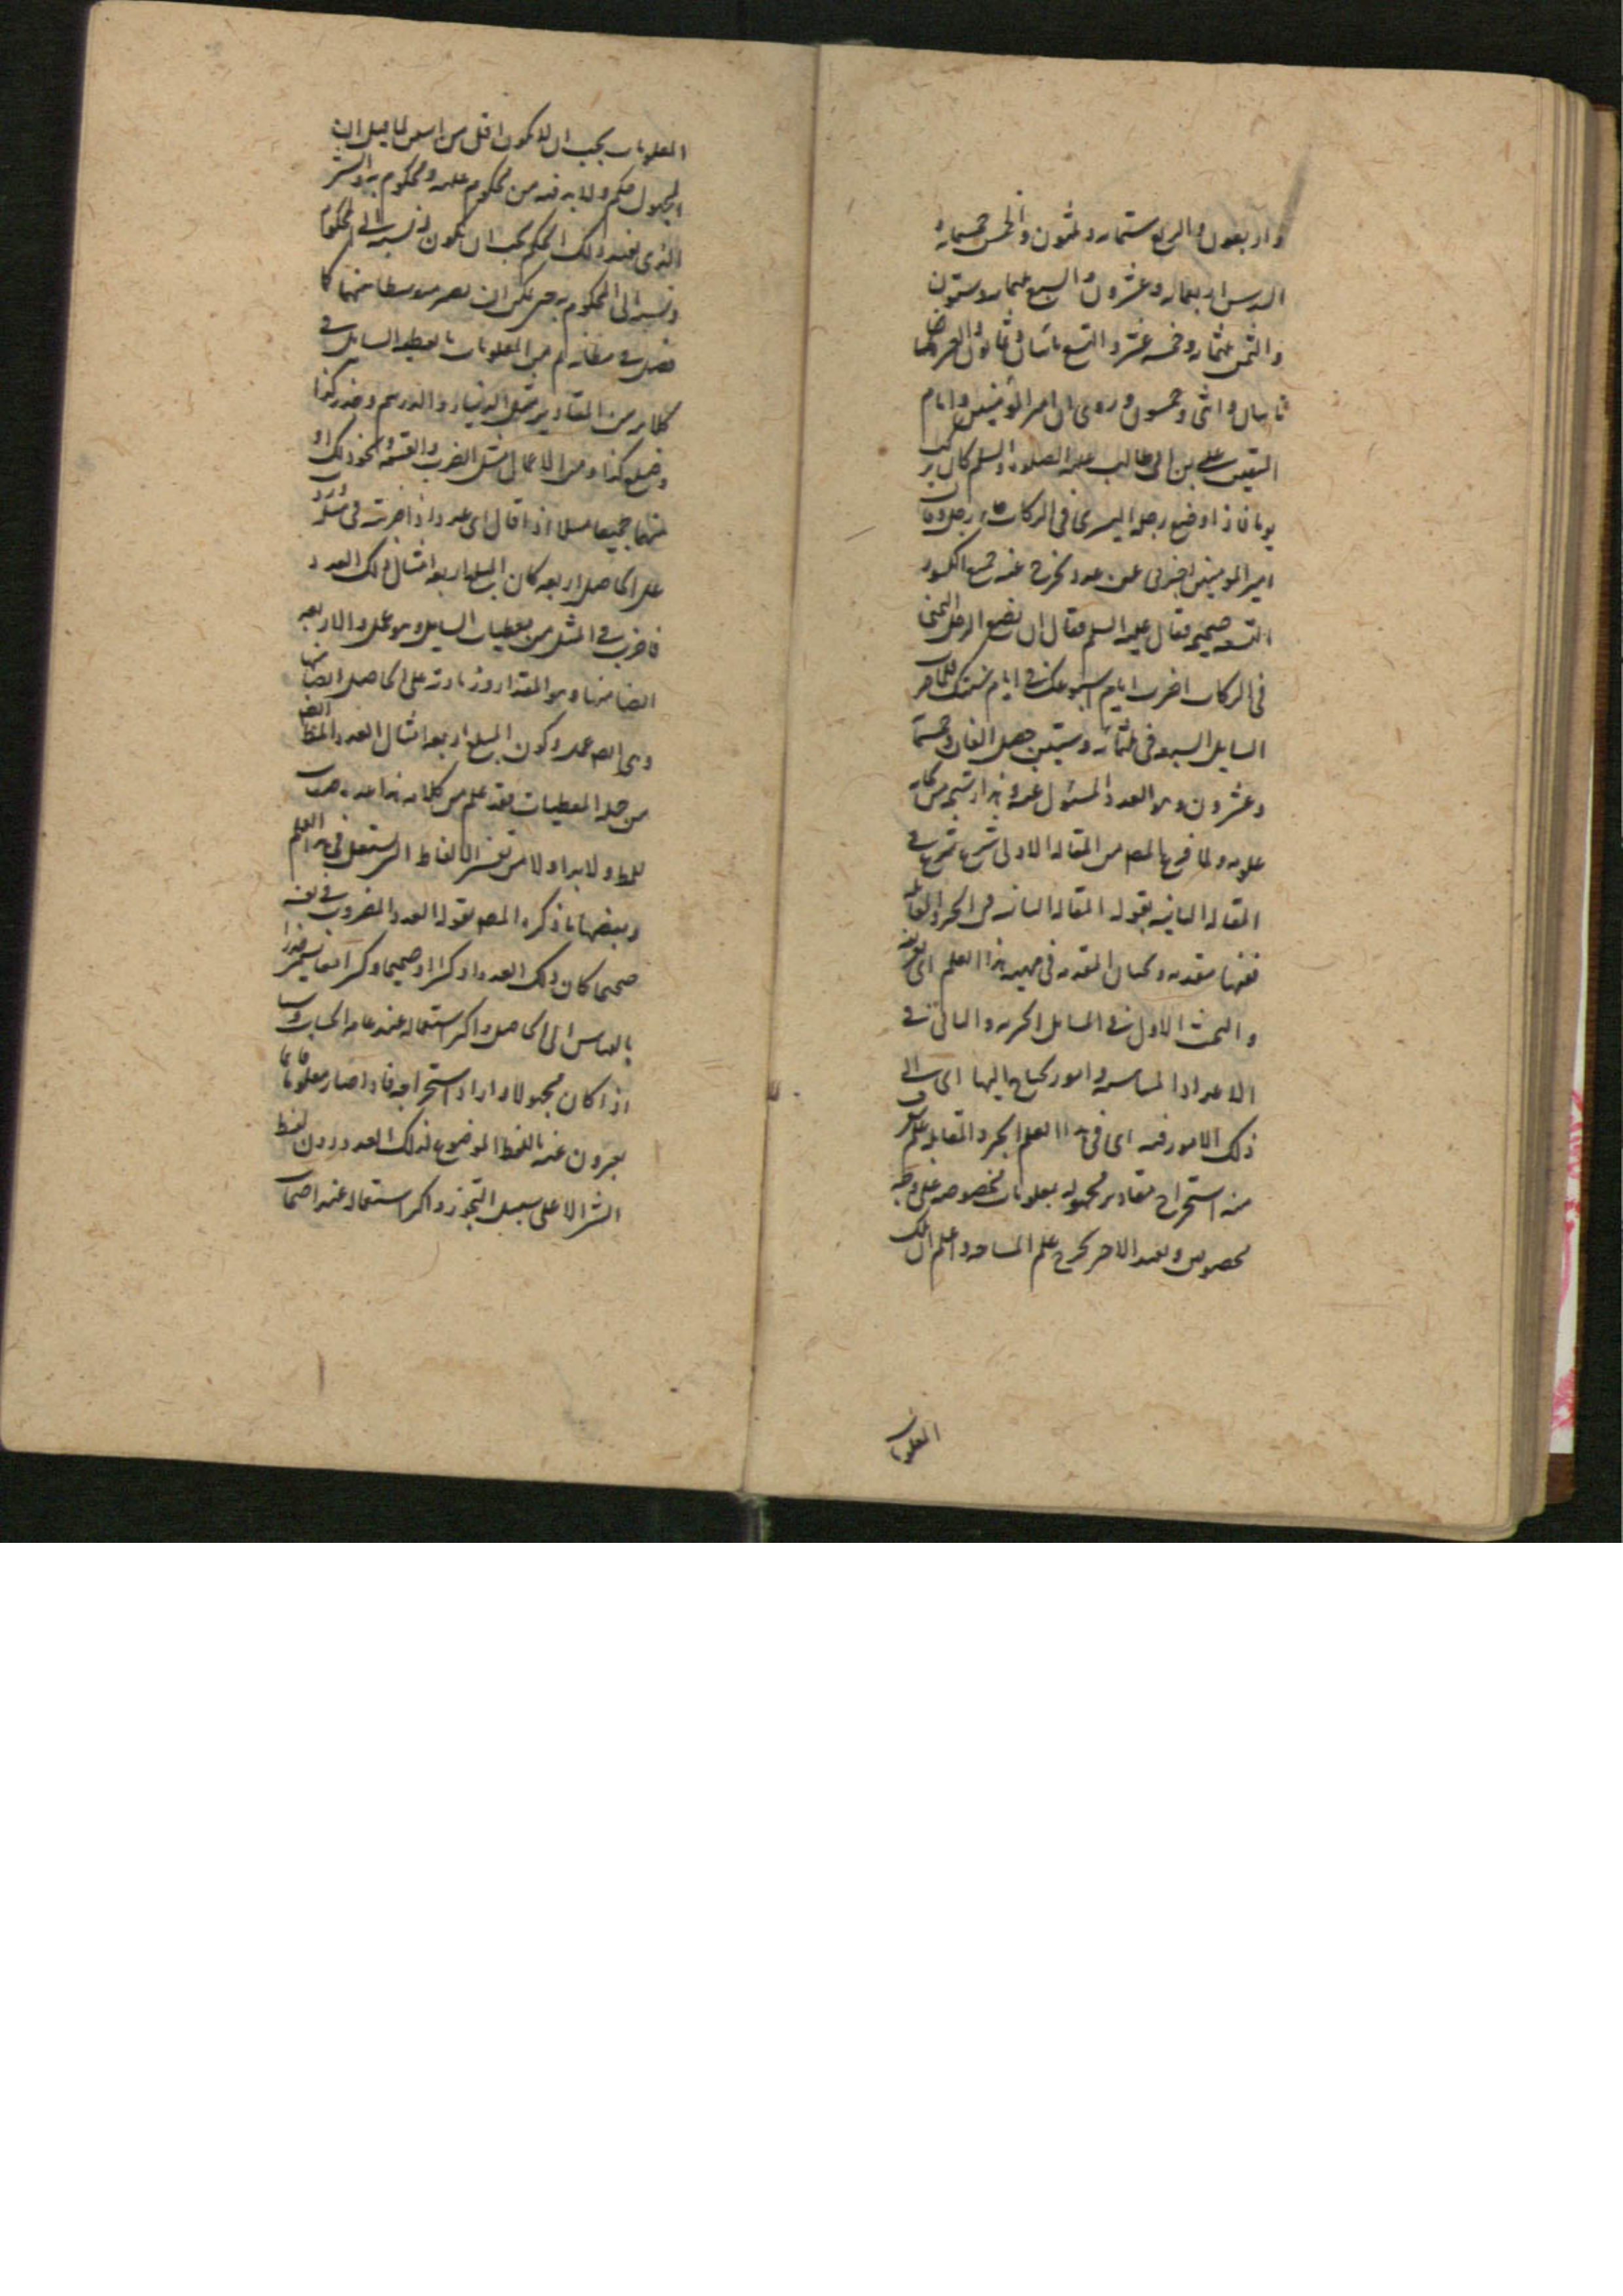 واربعون والربع ستمائه وثلثون والخمس خمسمائه و
السدس اربعمائه وعشرون والسبع ثلثمائه وستون
والثمن ثلثمائه وخمسه عشر والتسع مائتان وثمانون والعشر
مائتان واثنى وخمسون وروى ان امير المؤمنين وامام
المتقين على بن ابى طالب عليه الصلوه والسلم كان يركب
يوما فاذا وضع رجله اليسرى فى الركاب جاء رجل وقال
امير المومنين اخبرنى عن عدد يخرج عنه جميع الكسور
التسعه صحيحه فقال عليه السلم فقال ان يضع الرجل اليمنى
فى الركاب اضرب ايام اسبوعك فى ايام سنتك فلما ضرب
السايل السبعه فى ثلثمائه وستين حصل الفان وخمسمائه
وعشرون وهو العدد المسئول عنه وهذا رشحه من بحار
علومه ولما فرغ المصم من المقاله الاولى شرع فى
المقاله الثانيه بقوله المقاله الثانيه فى الجبر والمقابله
ففيها مقدمه وبحثان المقدمه فى مهيه هذا العلم اى
والبحث الاول فى المسايل الجبريه والثانى فى
الاعداد المتناسبه وامور يحتاج اليها اى الى
ذلك الامور فيه اى فى هذا العلم الجبر والمقابله علم يعرف
منه استخراج مقادير مجهوله بمعلومات مخصوصه على وجه
مخصوص وبقيد الاخير يخرج علم المساحه واعلم ان تلك
المعلومات
المعلومات يجب ان لا يكون اقل من اثنين لما قيل ان
المجهول حكم ولا بد فيه من محكوم عليه ومحكوم به والشئ
الذى يفيد ذلك الحكم يجب ان يكون له نسبه الى المحكوم
ونسبه الى المحكوم به حتى يمكن ان يصير متوسطا بينهما كما
فصل فى مظانه ثم من المعلومات ما يعطيه السايل فى
كلامه من المقادير مثل الدينار والدرهم وقدر كذا
وضلع كذا ومن الاعمال مثل الضرب والقسمه ونحو ذلك او
منهما جميعا مثلا اذا قال اى عدد اذا ضرب فى مثله وزيد
على الحاصل اربعه كان المبلغ اربعه امثال ذلك العدد
فاضرب فى المثل من معطيات السايل وهو عمل والاربعه
ايضا منها وهو المقدار وزيادته على الحاصل ايضا منها
وهى ايضا عمل وكون المبلغ اربعه امثال العدد المط ايضا
من جمله المعطيات فقد علم من كلامه هذا
للمط ولا بد اولا من تفسير الالفاظ المستعمل فى هذا العلم
وبعضها ما ذكره المصم بقوله العدد المضروب فى نفسه
صحيحا كان ذلك العدد او كسرا او صحيحا وكسرا معا يسمى جذرا
بالقياس الى الحاصل واكثر استعماله عند عامه الحساب
اذا كان مجهولا واراد استخراجه فاذا صار معلوما فانما
يعبرون عنه باللفظ الموضوع لذلك العدد دون لفظ
الشئ الا على سبيل التجوز واكثر استعماله عند اصحاب